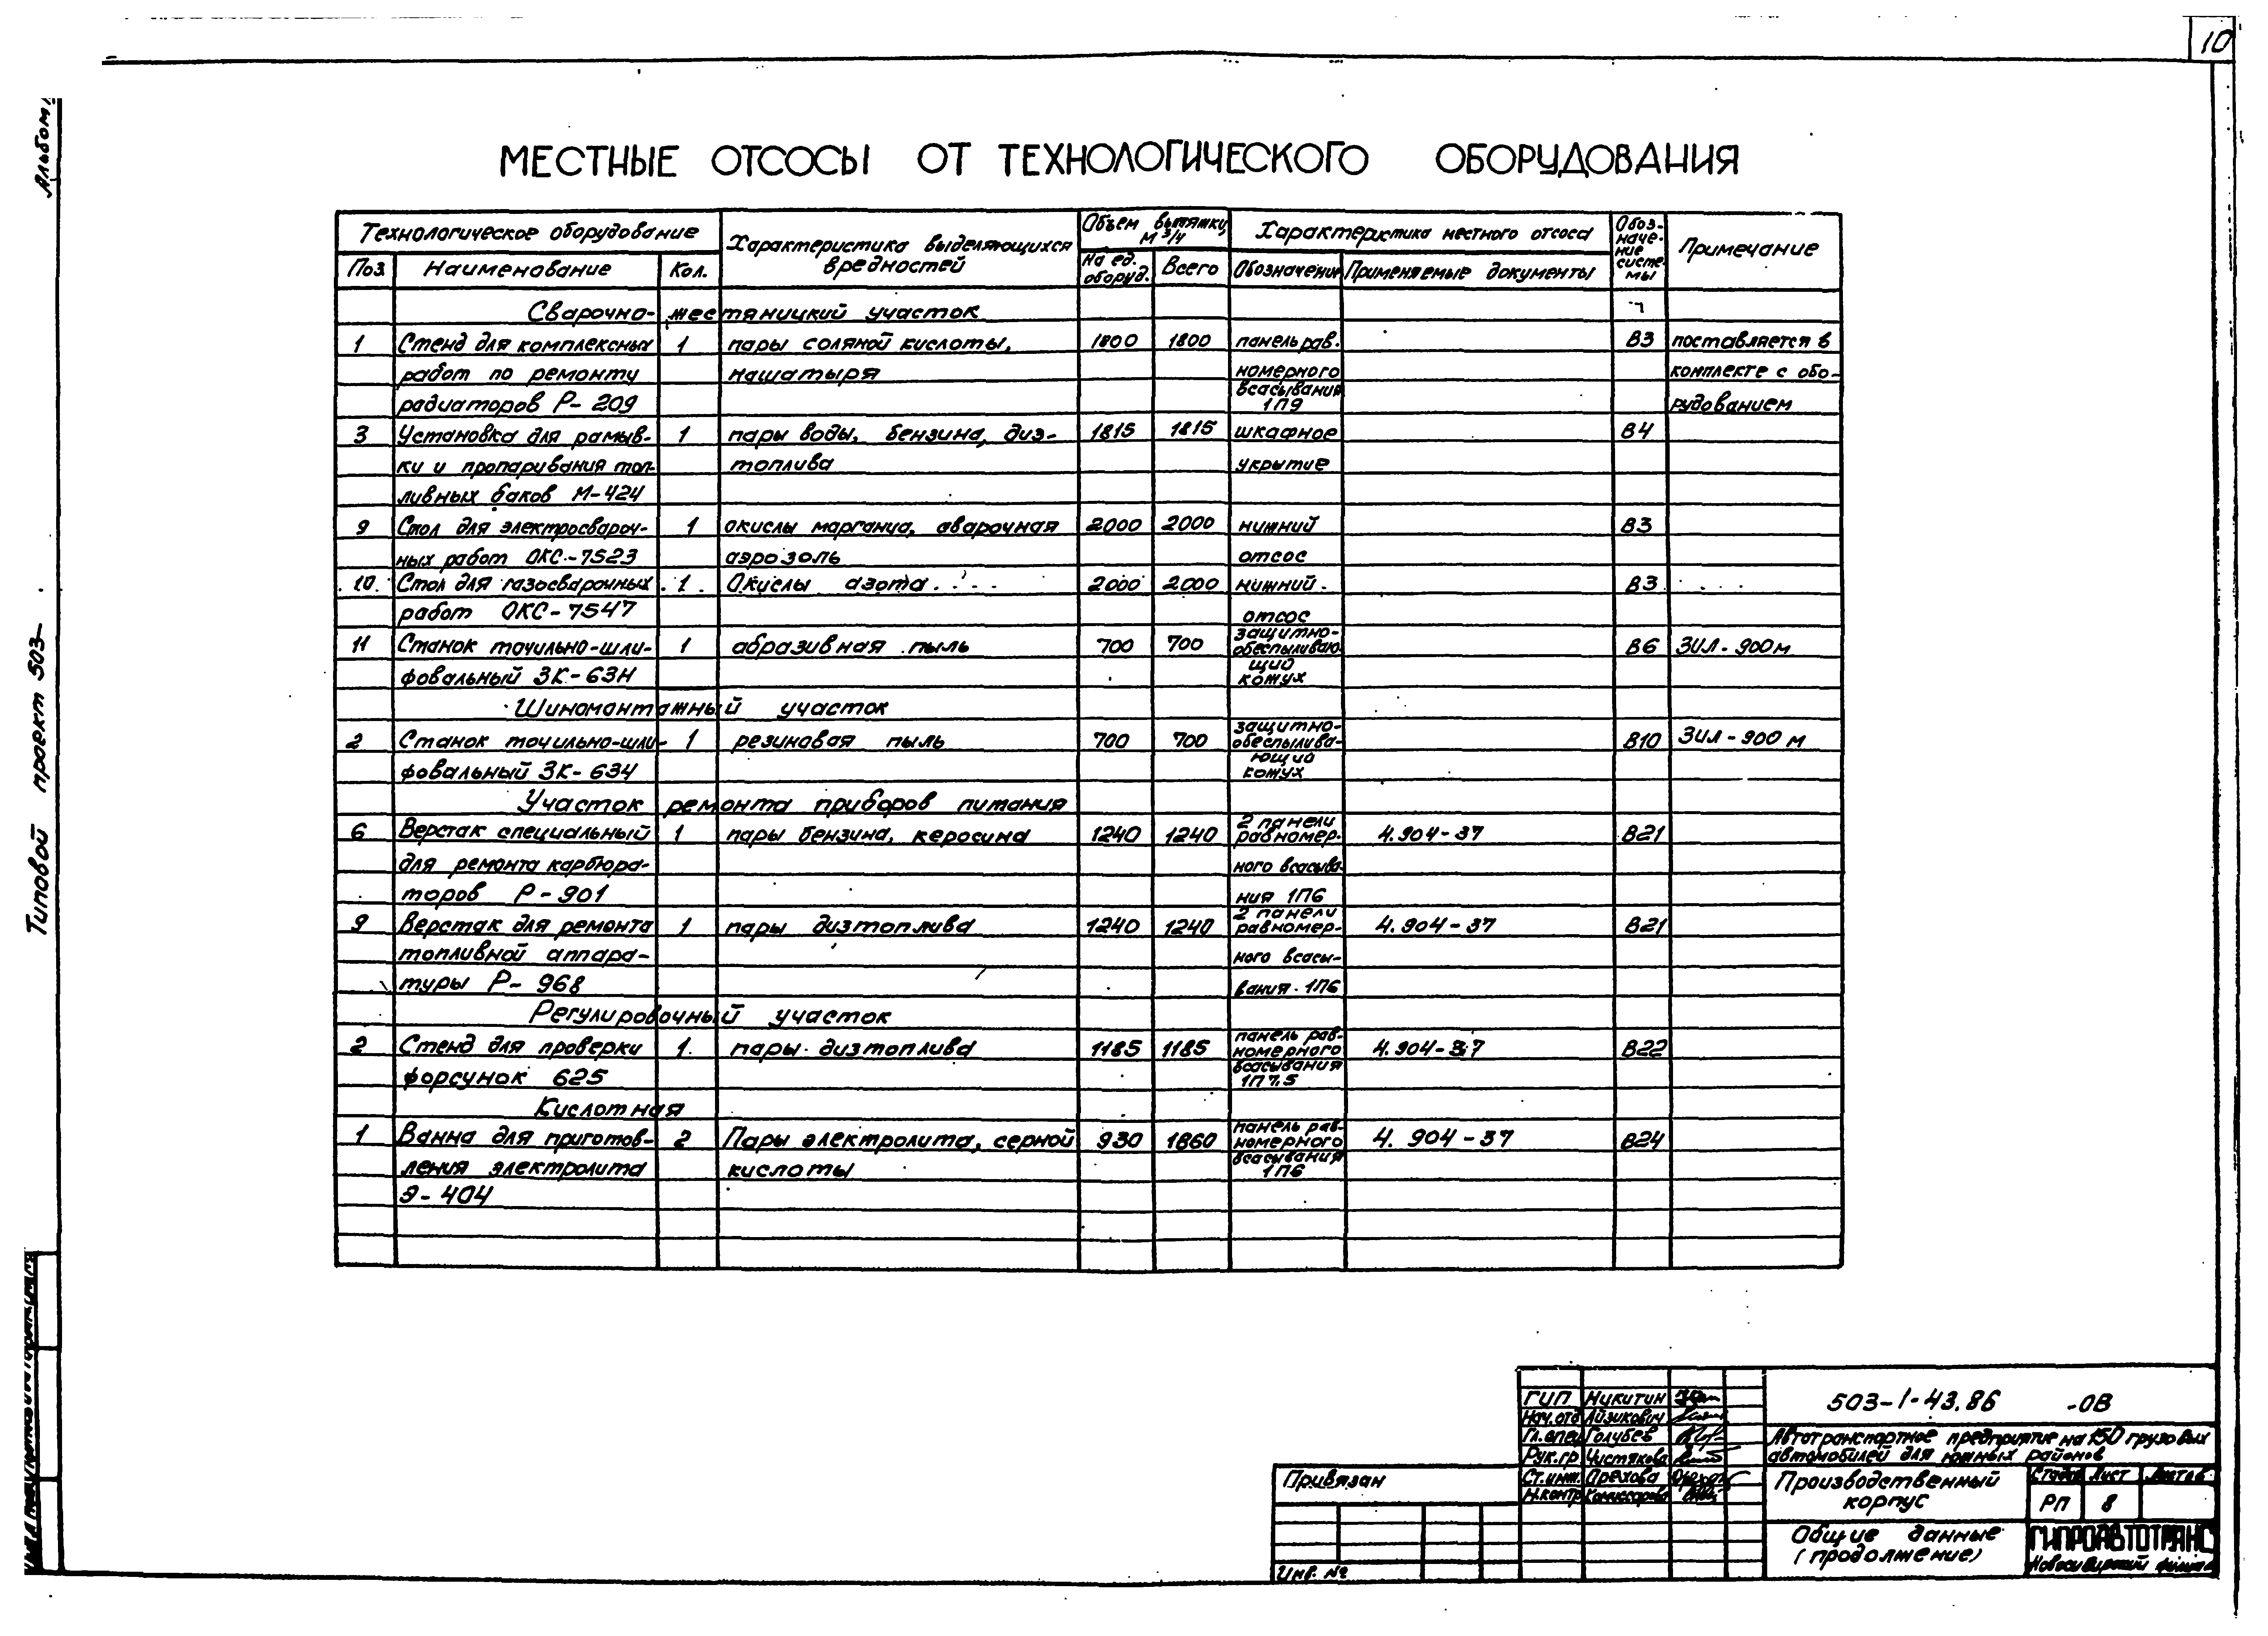 10
Альбом
Типовой проект 503-
МЕСТНЫЕ ОТСОСЫ ОТ ТЕХНОЛОГИЧЕСКОГО ОБОРУДОВАНИЯ
Технологическое оборудование
Поз. Наименование Кол.
Характеристика выделяющихся вредностей
Объем вытяжки, м³/ч
На ед. оборуд. Всего
Характеристика местного отсоса
Обозначение Применяемые документы
Обозначение системы
Примечание
Сварочно-жестяницкий участок
1 Стенд для комплексных 1 пары соляной кислоты, 1800 1800 панель рав- В3 поставляется в
работ по ремонту нашатыря номерного комплекте с обо-
радиаторов Р-209 всасывания 1П9 рудованием
3 Установка для рамыв- 1 пары воды, бензина, диз- 1815 1815 шкафное В4
ки и пропаривания топ- топлива укрытие
ливных баков М-424
9 Стол для электросвароч- 1 окислы марганца, сварочная 2000 2000 нижний В3
ных работ ОКС-7523 аэрозоль отсос
10 Стол для газосварочных 1 Окислы азота 2000 2000 нижний В3
работ ОКС-7547 отсос
11 Станок точильно-шли- 1 абразивная пыль 700 700 защитно-обеспыливаю- В6 ЗИЛ-900м
фовальный 3К-63Н щий кожух
Шиномонтажный участок
2 Станок точильно-шли- 1 резиновая пыль 700 700 защитно-обеспылива- В10 ЗИЛ-900м
фовальный 3К-634 ющий кожух
Участок ремонта приборов питания
6 Верстак специальный 1 пары бензина, керосина 1240 1240 2 панели равномер- 4.904-37 В21
для ремонта карбюра- ного всасыва-
торов Р-901 ния 1П6
9 Верстак для ремонта 1 пары дизтоплива 1240 1240 2 панели равномер- 4.904-37 В21
топливной аппара- ного всасы-
туры Р-968 вания 1П6
Регулировочный участок
2 Стенд для проверки 1 пары дизтоплива 1185 1185 панель рав-номерного 4.904-37 В22
форсунок 625 всасывания 1П7,5
Кислотная
1 Ванна для приготов- 2 Пары электролита, серной 930 1860 панель рав-номерного 4.904-37 В24
ления электролита кислоты всасывания 1П6
Э-404
ГИП Никитин
Нач.отд Айзикович
Гл.спец Голубев
Рук.гр Чистякова
Ст.инж. Орехова
Н.контр Комиссарова
Привязан
Инв. №
503-1-43.86 -ОВ
Автотранспортное предприятие на 150 грузовых
автомобилей для южных районов
Производственный
корпус
Стадия Лист Листов
РП 8
Общие данные
(продолжение)
ГИПРОАВТОТРАНС
Новосибирский филиал